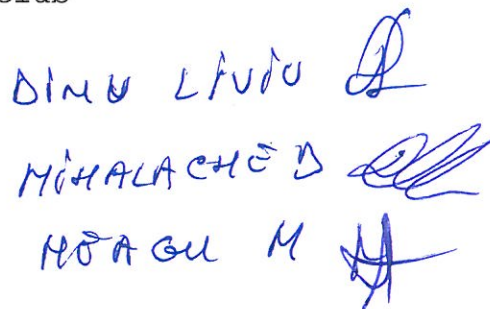 DINU LIVIU
MIHALACHE D
NEAGU M